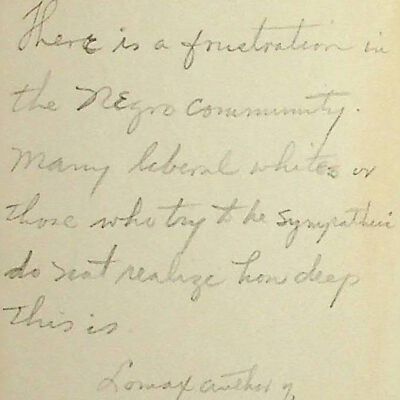 There is a frustration in
the Negro community.
Many liberal whites or
those who try to be sympathetic
do not realize how deep
this is.
Lomax author of